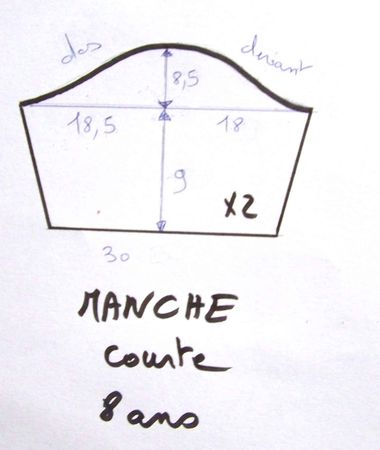 dos devant
8,5
18,5 18
9
X2
30
MANCHE
courte
8 ans